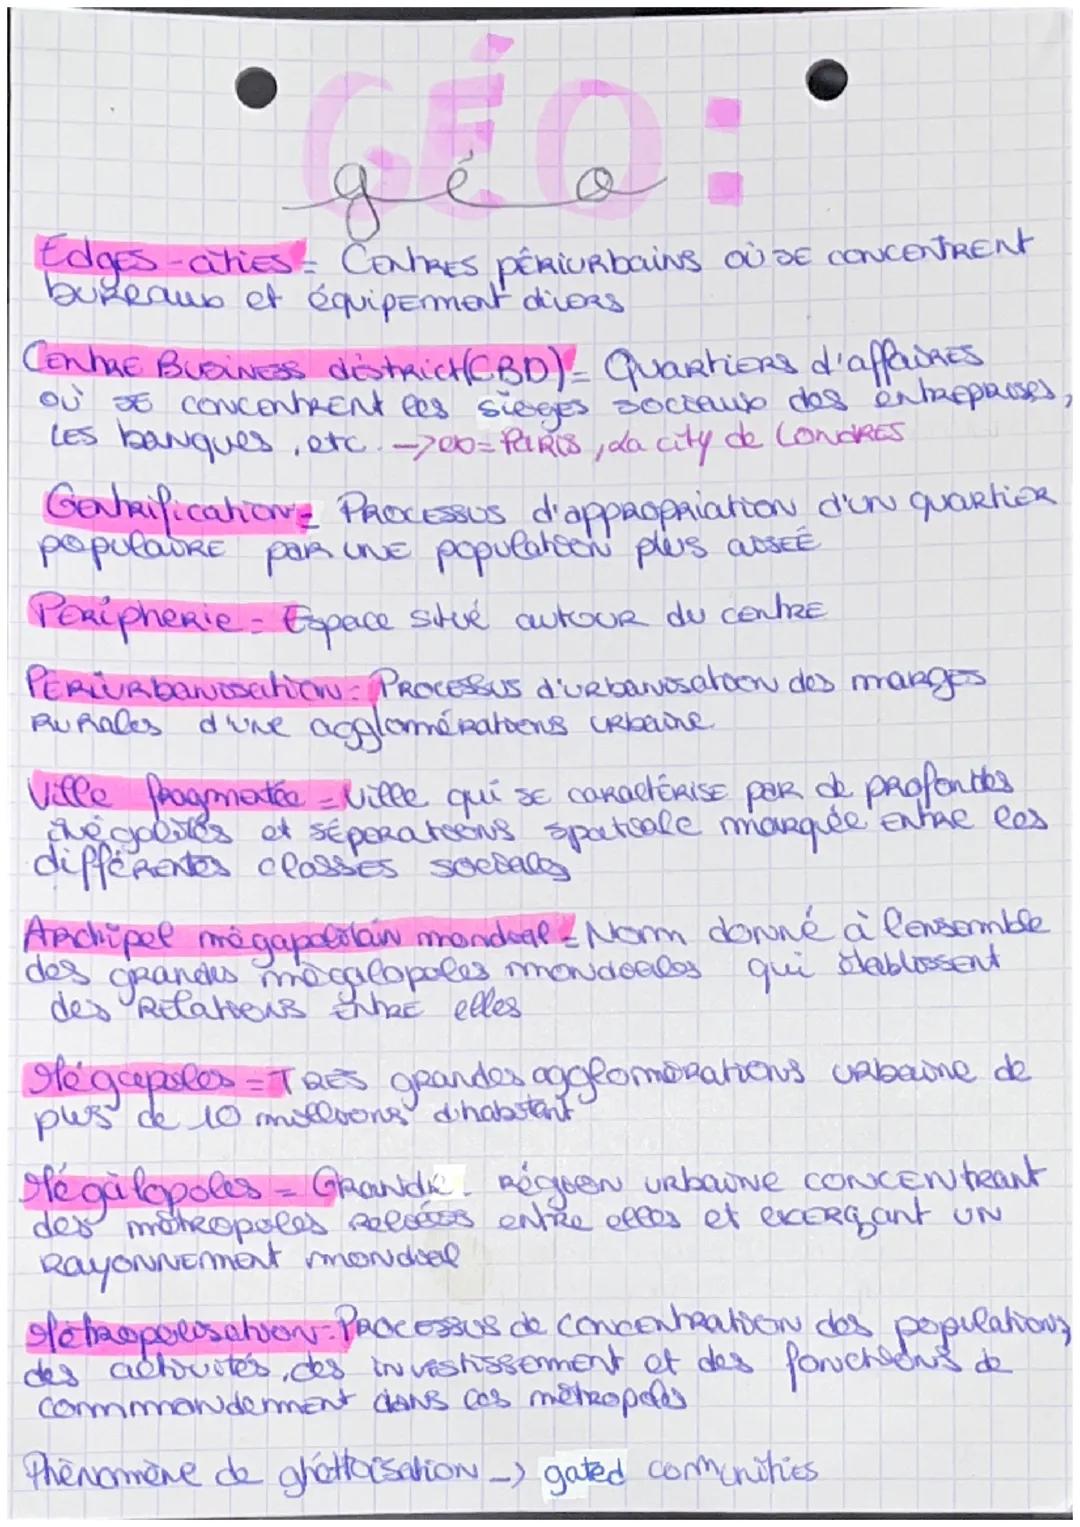 GÉO :
géo
Edges-cities = Centres périurbains où se concentrent
bureaux et équipement divers
Centre Business district (CBD) = Quartiers d'affaires
où se concentrent les sièges sociaux des entreprises,
les banques, etc. -> ex = Paris, la city de Londres
Gentrification = Processus d'appropriation d'un quartier
populaire par une population plus aisée
Péripherie = Espace situé autour du centre
Périurbanisation = Processus d'urbanisation des marges
rurales d'une agglomérations urbaine
Ville fragmatée = Ville qui se caractérise par de profondes
inégalités et séparations spatiale marquée entre les
différentes classes sociales
Archipel mégapolitain mondial = Nom donné à l'ensemble
des grandes mégalopoles mondiales qui établissent
des relations entre elles
Mégapoles = Très grandes agglomérations urbaine de
plus de 10 millions d'habitant
Mégàlopoles = Grande région urbaine concentrant
des métropoles reliées entre elles et exerçant un
rayonnement mondial
Métropolisation = Processus de concentration des populations,
des activités, des investissement et des fonctions de
commandement dans les métropoles
Phénomène de ghéttoïsation -> gated communities